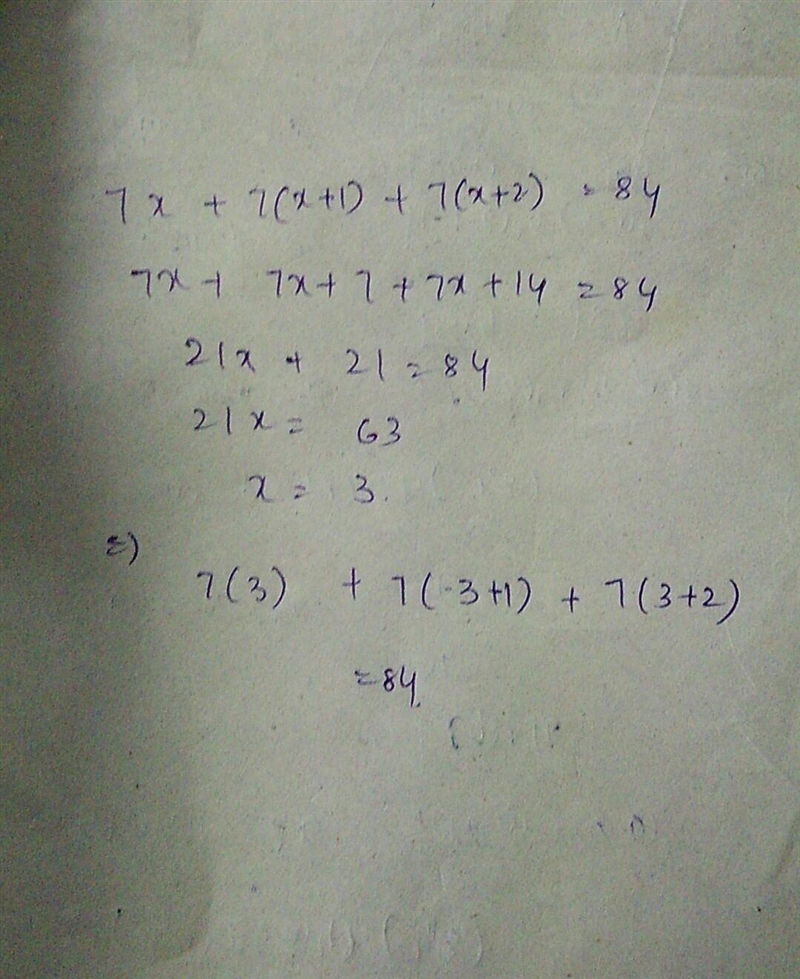 7x + 7(x+1) + 7(x+2) = 84
7x + 7x + 7 + 7x + 14 = 84
21x + 21 = 84
21x = 63
x = 3.
=)
7(3) + 7(3+1) + 7(3+2)
= 84.